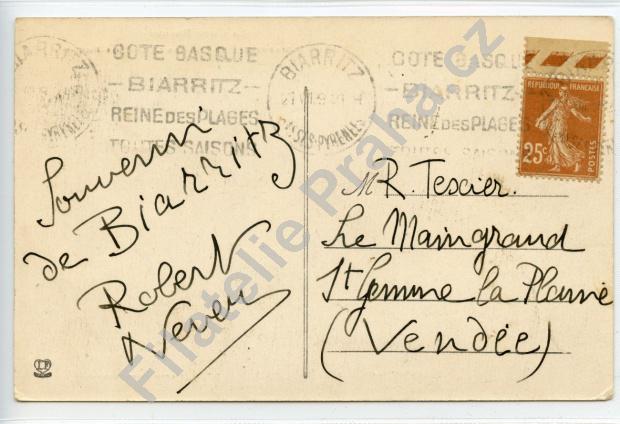 COTE BASQUE
—BIARRITZ—
REINE DES PLAGES
TOUTES SAISONS
BIARRITZ
BSES-PYRENEES
COTE BASQUE
BIARRITZ
REINE DES PLAGES
TOUTES SAISONS
REPUBLIQUE FRANÇAISE
25c
POSTES
Souvenir
de Biarritz
Robert
MR. Texier.
Le Maingraud
St Gemme la Plaine
(Vendée)
Filatelie Praha.cz